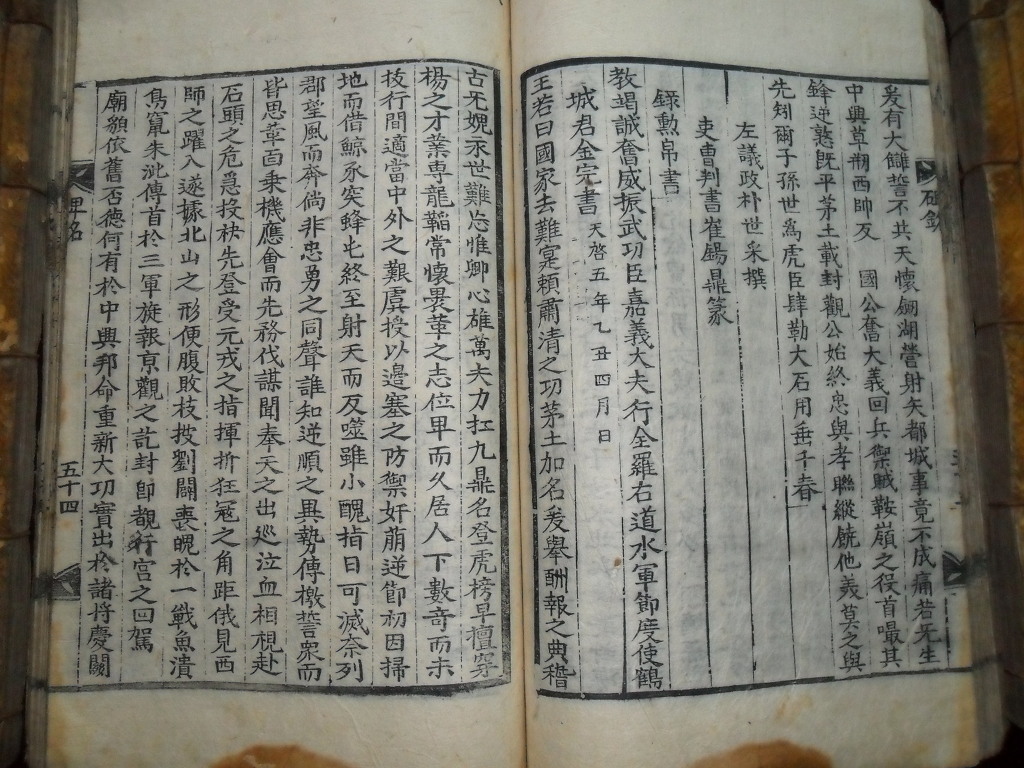 爰有大讎誓不共天懷劒湖甞射矢都城事竟不成痛若先生
中興草刱西帥反 國公奮大義回兵禦賊鞍嶺之役首嘬其
鋒逆憝旣平茅土載封觀公始終忠與孝聯縱饒他美莫之與
先矧爾子孫世爲虎臣肆勒大石用垂千春
左議政朴世采撰
吏曹判書崔錫鼎篆
錄勲帛書
教竭誠奮威振武功臣嘉義大夫行全羅右道水軍節度使鶴
城君金完書 天啓五年乙丑四月日
王若曰國家去難寔賴肅清之功茅土加名爰舉酬報之典稽
古旡媿永世難忘惟卿心雄萬夫力扛九鼎名登虎榜早擅穿
楊之才業專龍韜常懷褁革之志位卑而久居人下數奇而未
技行間適當中外之艱虞授以邊塞之防禦奸萠逆節初因掃
地而借鯨永突蜂屯終至射天而反噬雖小醜指日可滅奈列
郡望風而奔倘非忠勇之同聲誰知逆順之異勢傳檄誓衆而
皆思革面乘機應會而先務伐謀聞奉天之出巡泣血相視赴
石頭之危急投袂先登受元戎之指揮折狂冦之角距俄見西
師之躍入遂據北山之形便腹敗枝披劉闢喪魄於一戰魚潰
鳥竄朱泚傳首於三軍旋報京觀之訖封卽覩行宮之回駕
廟貌依舊否德何有於中興邦命重新大功實出於諸將慶闢
碑銘
五十四